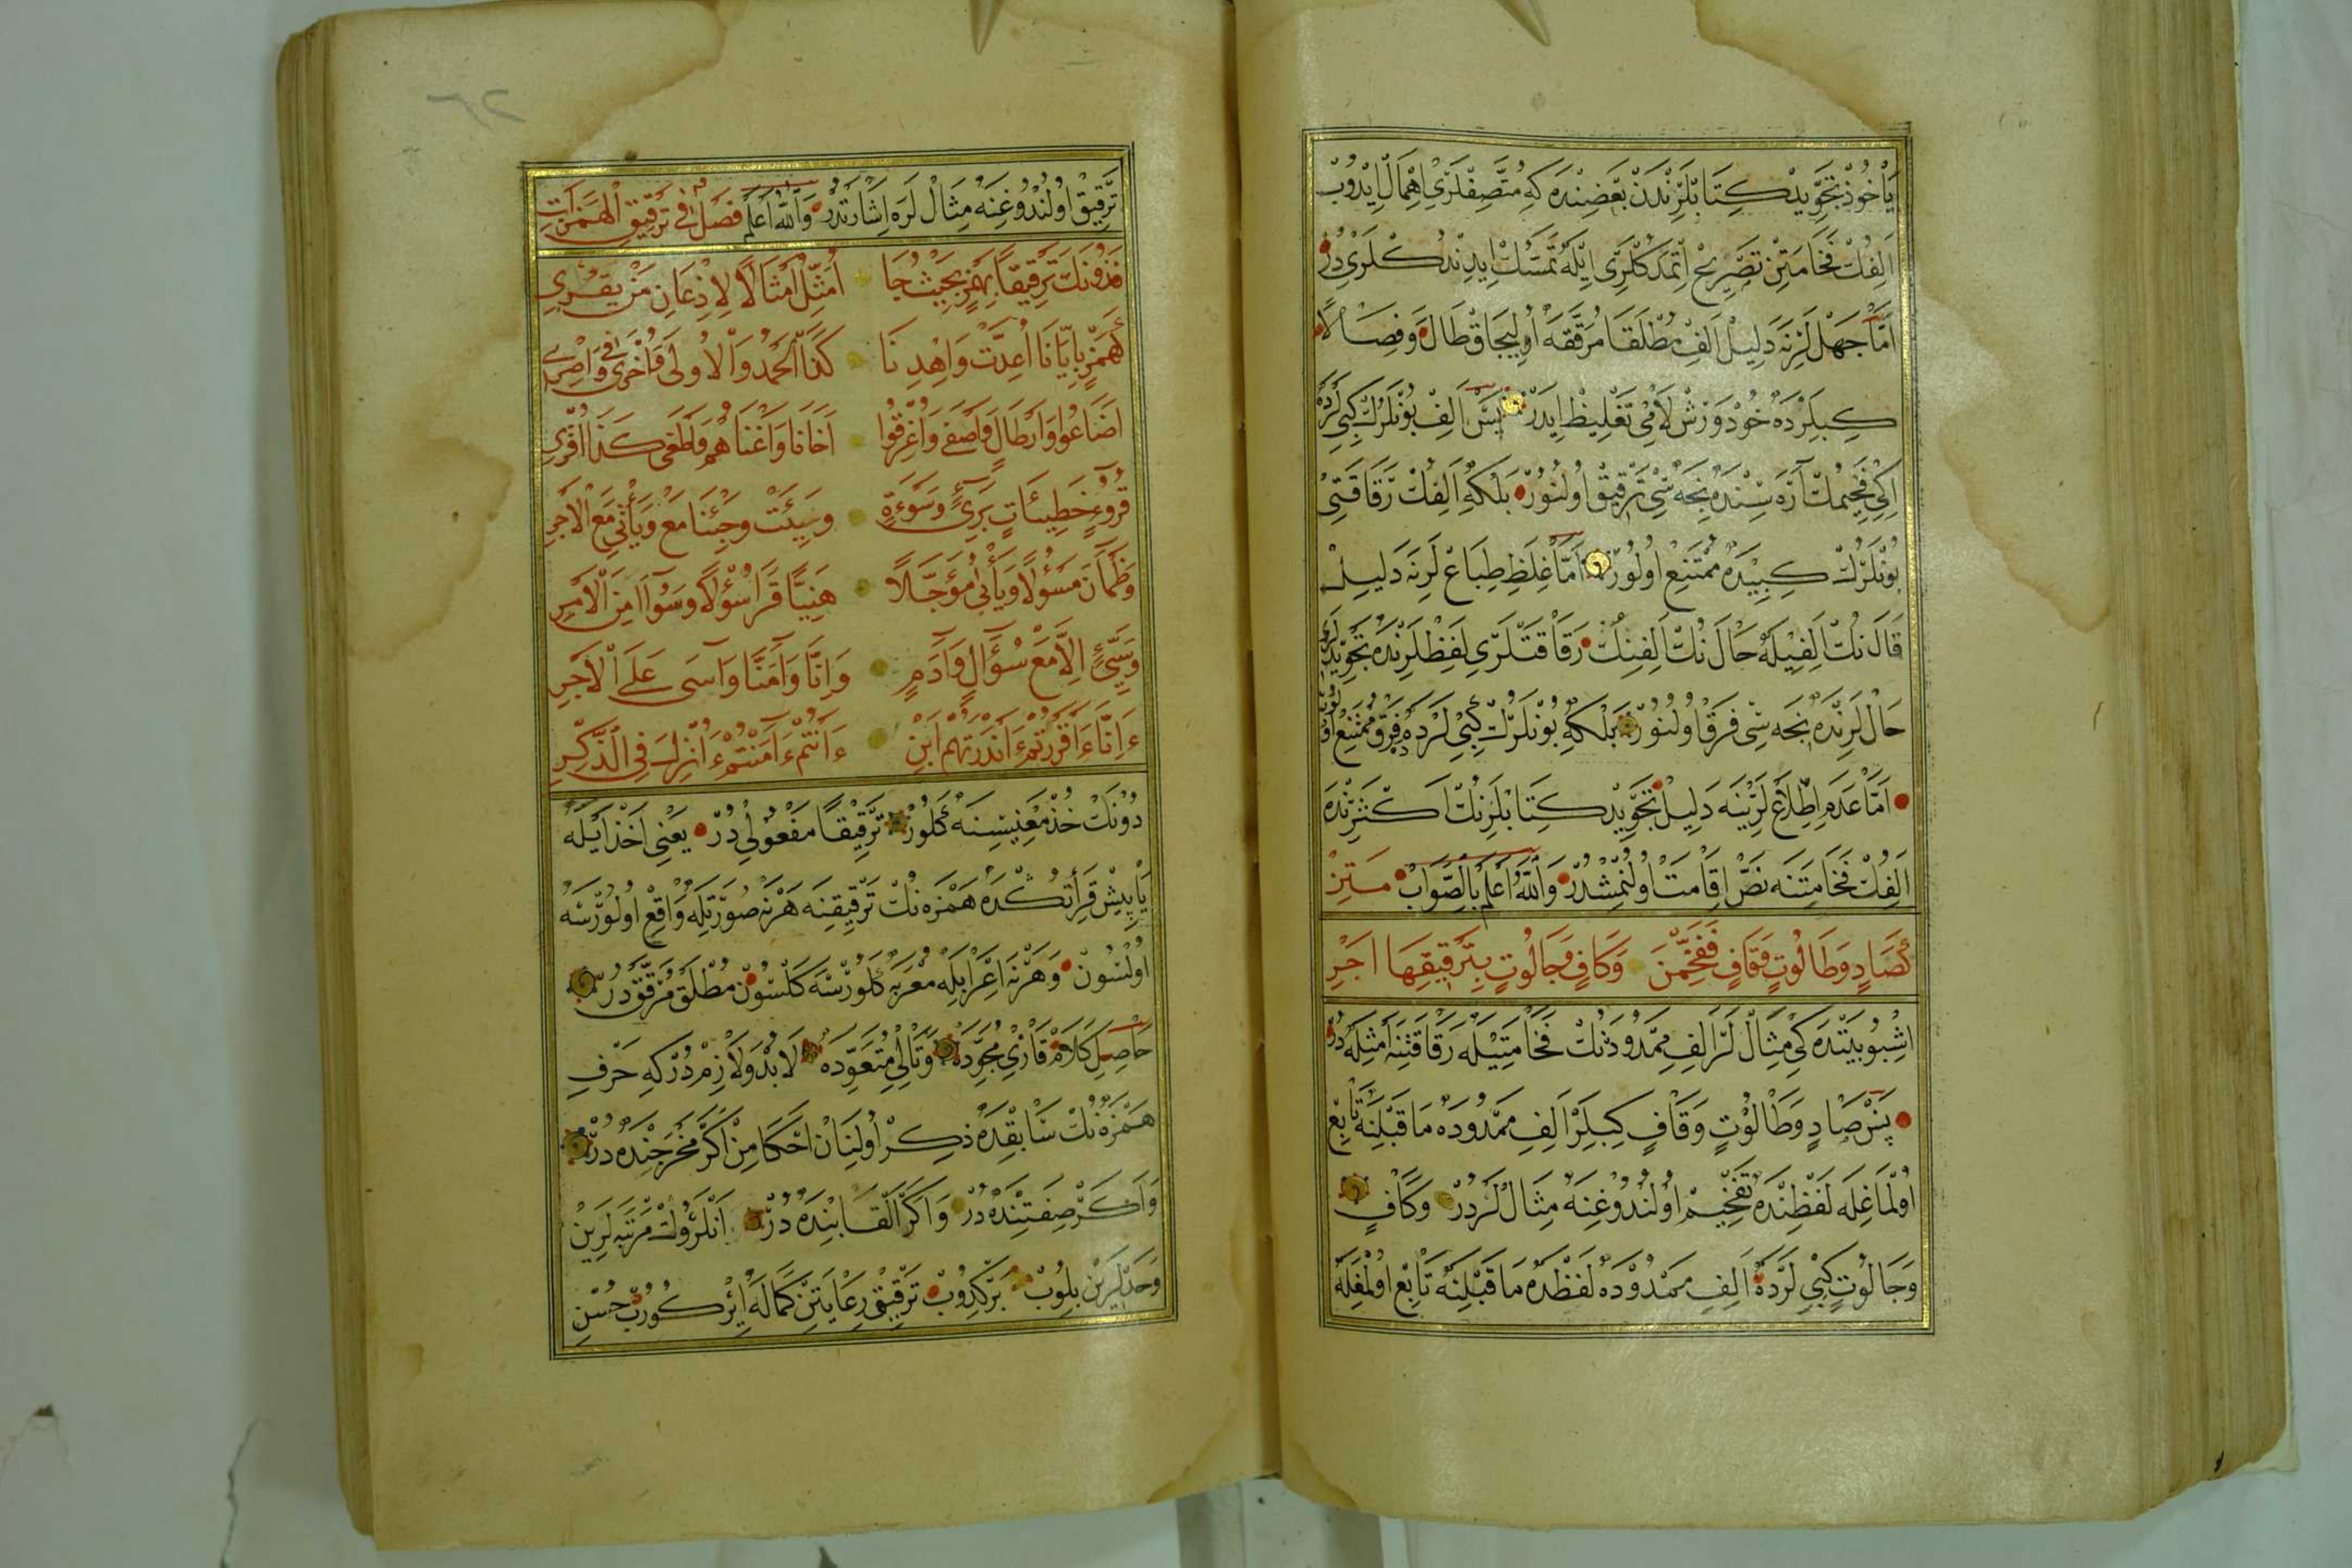 يَاخُوذْ تَجْوِيدْ كِتَابْلَرِنْدَنْ بَعْضِنْدَه كِه مُتَّصِفْلَرِى اِهْمَالْ اِيدُوبْ
اَلِفُكْ فَخَامَتِنْ تَصْرِيحْ اِتْمَدُكْلَرِى اِيْلَه تَمَسُّكْ اِيدِنْدُكْلَرِى دُرْ
اَمَّا جَهْلْ لَرِنَه دَلِيلْ اَلِفْ مُطْلَقَا مُرَقَّقَه اُولِيجَاقْ طَالَ وَفِصَالًا
كِبِيلَرْدَه خُودْ وَرْشْ لَامِى تَغْلِيظْ اِيدَرْ پَسْ اَلِفْ بُونْلَرُكْ كِبِى لَرْدَه
اِكِى فَخِيمُكْ آرَه سِنْدَه نِجَه سِى تَرْقِيقْ اُولُنُورْ بَلْكِه اَلِفُكْ رَقَاقَتِى
بُونْلَرُكْ كِبِيدَه مُمْتَنِعْ اُولُورْ اَمَّا غِلَظِ طِبَاعْ لَرِنَه دَلِيلْ
قَالَ نُكْ اَلِفِيلَه حَالَ نُكْ اَلِفِنُكْ رَقَاقَتْلَرِى لَفْظْلَرِنْدَه تَجْوِيدْلَرِى
حَالْ لَرِنْدَه نِجَه سِى فَرْقْ اُولُنُورْ بَلْكِه بُونْلَرُكْ كِبِى لَرْدَه فَرْقْ مُمْتَنِعْ اُولُورْ
اَمَّا عَدَمِ اِطِّلَاعْ لَرِينَه دَلِيلْ تَجْوِيدْ كِتَابْلَرِنُكْ اَكْثَرِنْدَه
اَلِفُكْ فَخَامَتِنَه نَصْ اِقَامَتْ اُولُنْمِشْدُرْ وَاللّٰهُ اَعْلَمُ بِالصَّوَابْ مَتِنْ
كَصَادٍ وَطَالُوتٍ وَقَافٍ فَفَخِّمَنْ وَكَافٍ وَجَالُوتٍ بِتَرْقِيقِهَا اَجْرِ
اِشْبُو بَيْتْدَه كِى مِثَالْ لَرْ اَلِفِ مَمْدُودَنُكْ فَخَامَتِيلَه رَقَاقَتِنَه اَمْثِلَه دُرْ
پَسْ صَادٍ وَطَالُوتٍ وَقَافٍ كِبِيلَرْ اَلِفِ مَمْدُودَه مَا قَبْلِنَه تَابِعْ
اُولْمَاغِلَه لَفْظِنْدَه تَفْخِيمْ اُولُنْدُوغِنَه مِثَالْ لَرْدُرْ وَكَافٍ
وَجَالُوتٍ كِبِى لَرْدَه اَلِفِ مَمْدُودَه لَفْظْدَه مَا قَبْلِنَه تَابِعْ اُولْمَغِلَه
تَرْقِيقْ اُولُنْدُوغِنَه مِثَالْ لَرَه اِشَارَتْدُرْ وَاللّٰهُ اَعْلَمُ فَصْلٌ فِى تَرْقِيقِ الْهَمَزَاتِ
فَدُونَكَ تَرْقِيقًا بِهَمْزٍ بِحَيْثُ جَا اُمَثِّلُ اَمْثَالًا لِاِذْعَانِ مَنْ يَقْرِى
كَهَمْزٍ بِاِيَّانَا اُعِدَّتْ وَاهْدِنَا كَذَا اَلْحَمْدُ وَالْاُولَى وَاُخْرَى وَاِصْرِى
اَضَاعُوا وَاَرْطَالٍ وَاَصْفَى وَاُغْرِقُوا اَخَانَا وَاَغْنَاهُمْ وَاَطْغَى كَذَا اقْرَى
قُرُوءٍ خَطِيئَاتٍ بَرِىءٌ وَسَوْءَةٍ وَسِيئَتْ وَجِئْنَا مَعْ وَيَأْتِى مَعْ الْاَجْرِ
وَظَمْآنَ مَسْؤُلًا وَيَأْبَى مُؤَجَّلًا هَنِيئًا قَرَا سُؤْلًا وَسُوْاً مِنَ الْاَمْرِ
وَسَيِّىءٍ اِلَّا مَعْ سُؤَالٍ وَآدَمٍ وَاِنَّا وَآمَنَّا وَآسَى عَلَى الْاَجْرِ
ءَاِنَّا ءَاَقْرَرْتُمْ ءَاَنْذَرْتَهُمْ اَبِنْ ءَاَنْتُمْ ءَآمَنْتُمْ ءَاُنْزِلَ فِى الذِّكْرِ
دُونَكَ خُذْ مَعْنِيسِنَه كَلُورْ تَرْقِيقًا مَفْعُولِى دُرْ يَعْنِى اَخْذْ اَيْلَه
يَاپِيشْ قَرَأْتُكْدَه هَمْزَه نُكْ تَرْقِيقِنَه هَرْنَه صُورَتِلَه وَاقِعْ اُولُورْسَه
اُولْسُونْ وَهَرْنَه اِعْرَابِلَه مُعْرَبْ كَلُورْسَه كَلْسُونْ مُطْلَقْ مُرَقَّقْ دُرْ
حَاصِلِ كَلَامْ قَارِئِ مُجَوِّدَه وَتَالِئِ مُتَعَوِّدَه لَابُدْ وَلَازِمْ دُرْكِه حَرْفِ
هَمْزَه نُكْ سَابِقْدَه ذِكْرْ اُولُنَانْ اَحْكَامِنْ اَكَرْ مَخْرَجِنْدَه دُرْ
وَاَكَرْ صِفَتِنْدَه دُرْ وَاَكَرْ اَلْقَابِنْدَه دُرْ اَنْلَرُوكْ مَرْتَبَه لَرِينْ
وَحَدْلَرِينْ بِلُوبْ بَرْكِدُوبْ تَرْقِيقْ رِعَايَتِنْ كَمَالَه اِيرْكُورُبْ حُسْنِ